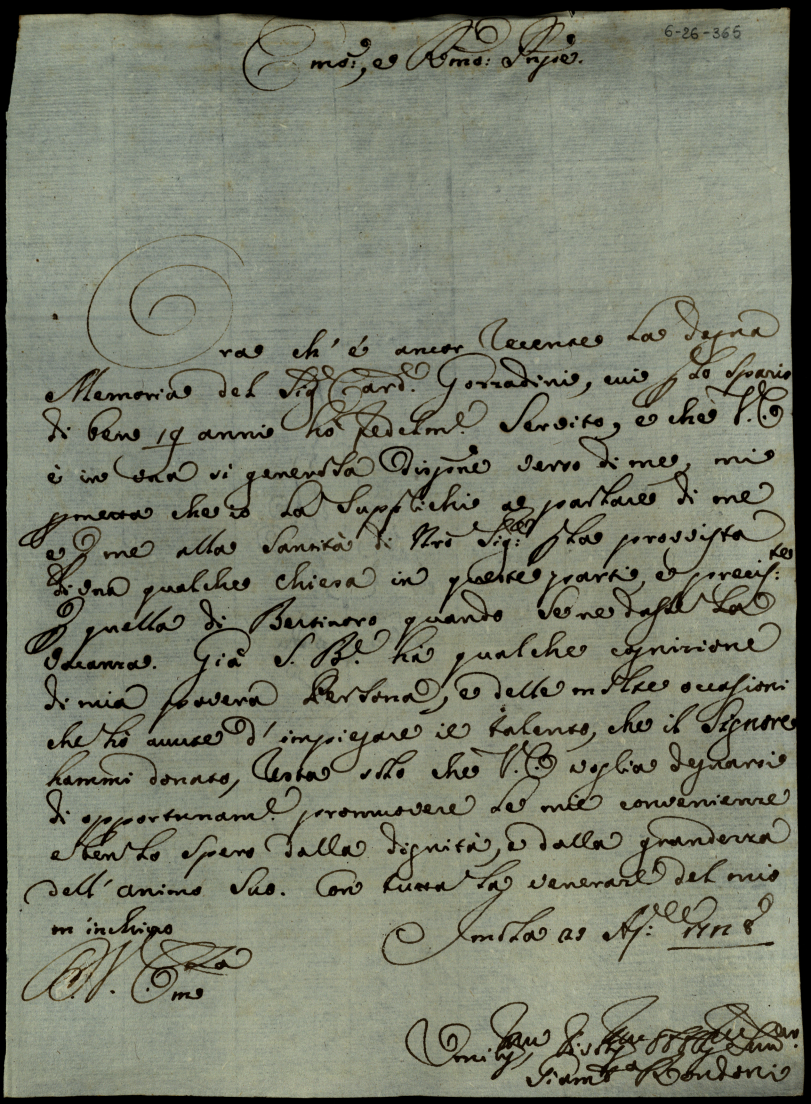 6-26-365
Emo:, e Rmo: Prípe.
Ora ch' è ancor recente la degna
Memoria del Sig.r Card.l Gozzadini, cui p lo spazio
di bene 19 anni hò fedelm.e servito, e che V.E.
è in una sì generosa dispne verso di me, mi
pmetta che io la supplichi a parlare di me
e p me alla Santità di Nro Sig.re p la provvista
di una qualche chiesa in queste parti, e precis.te
p quella di Bertinoro quando se ne dasse la
vacanza. Già S. B.e ha qualche cognizione
di mia povera Persona, e delle molte occasioni
che hò avute d' impiegare il talento, che il Signore
hammi donato, resta solo che V.E. voglia degnarsi
di opportunam.e promuovere le mie convenienze
e ben lo spero dalla dignità, e dalla grandezza
dell' animo suo. Con tutta la venerazne del mio
m' inchino
Imola
D. V. Em.za
Umilis.,
Giamb.a Bondoni